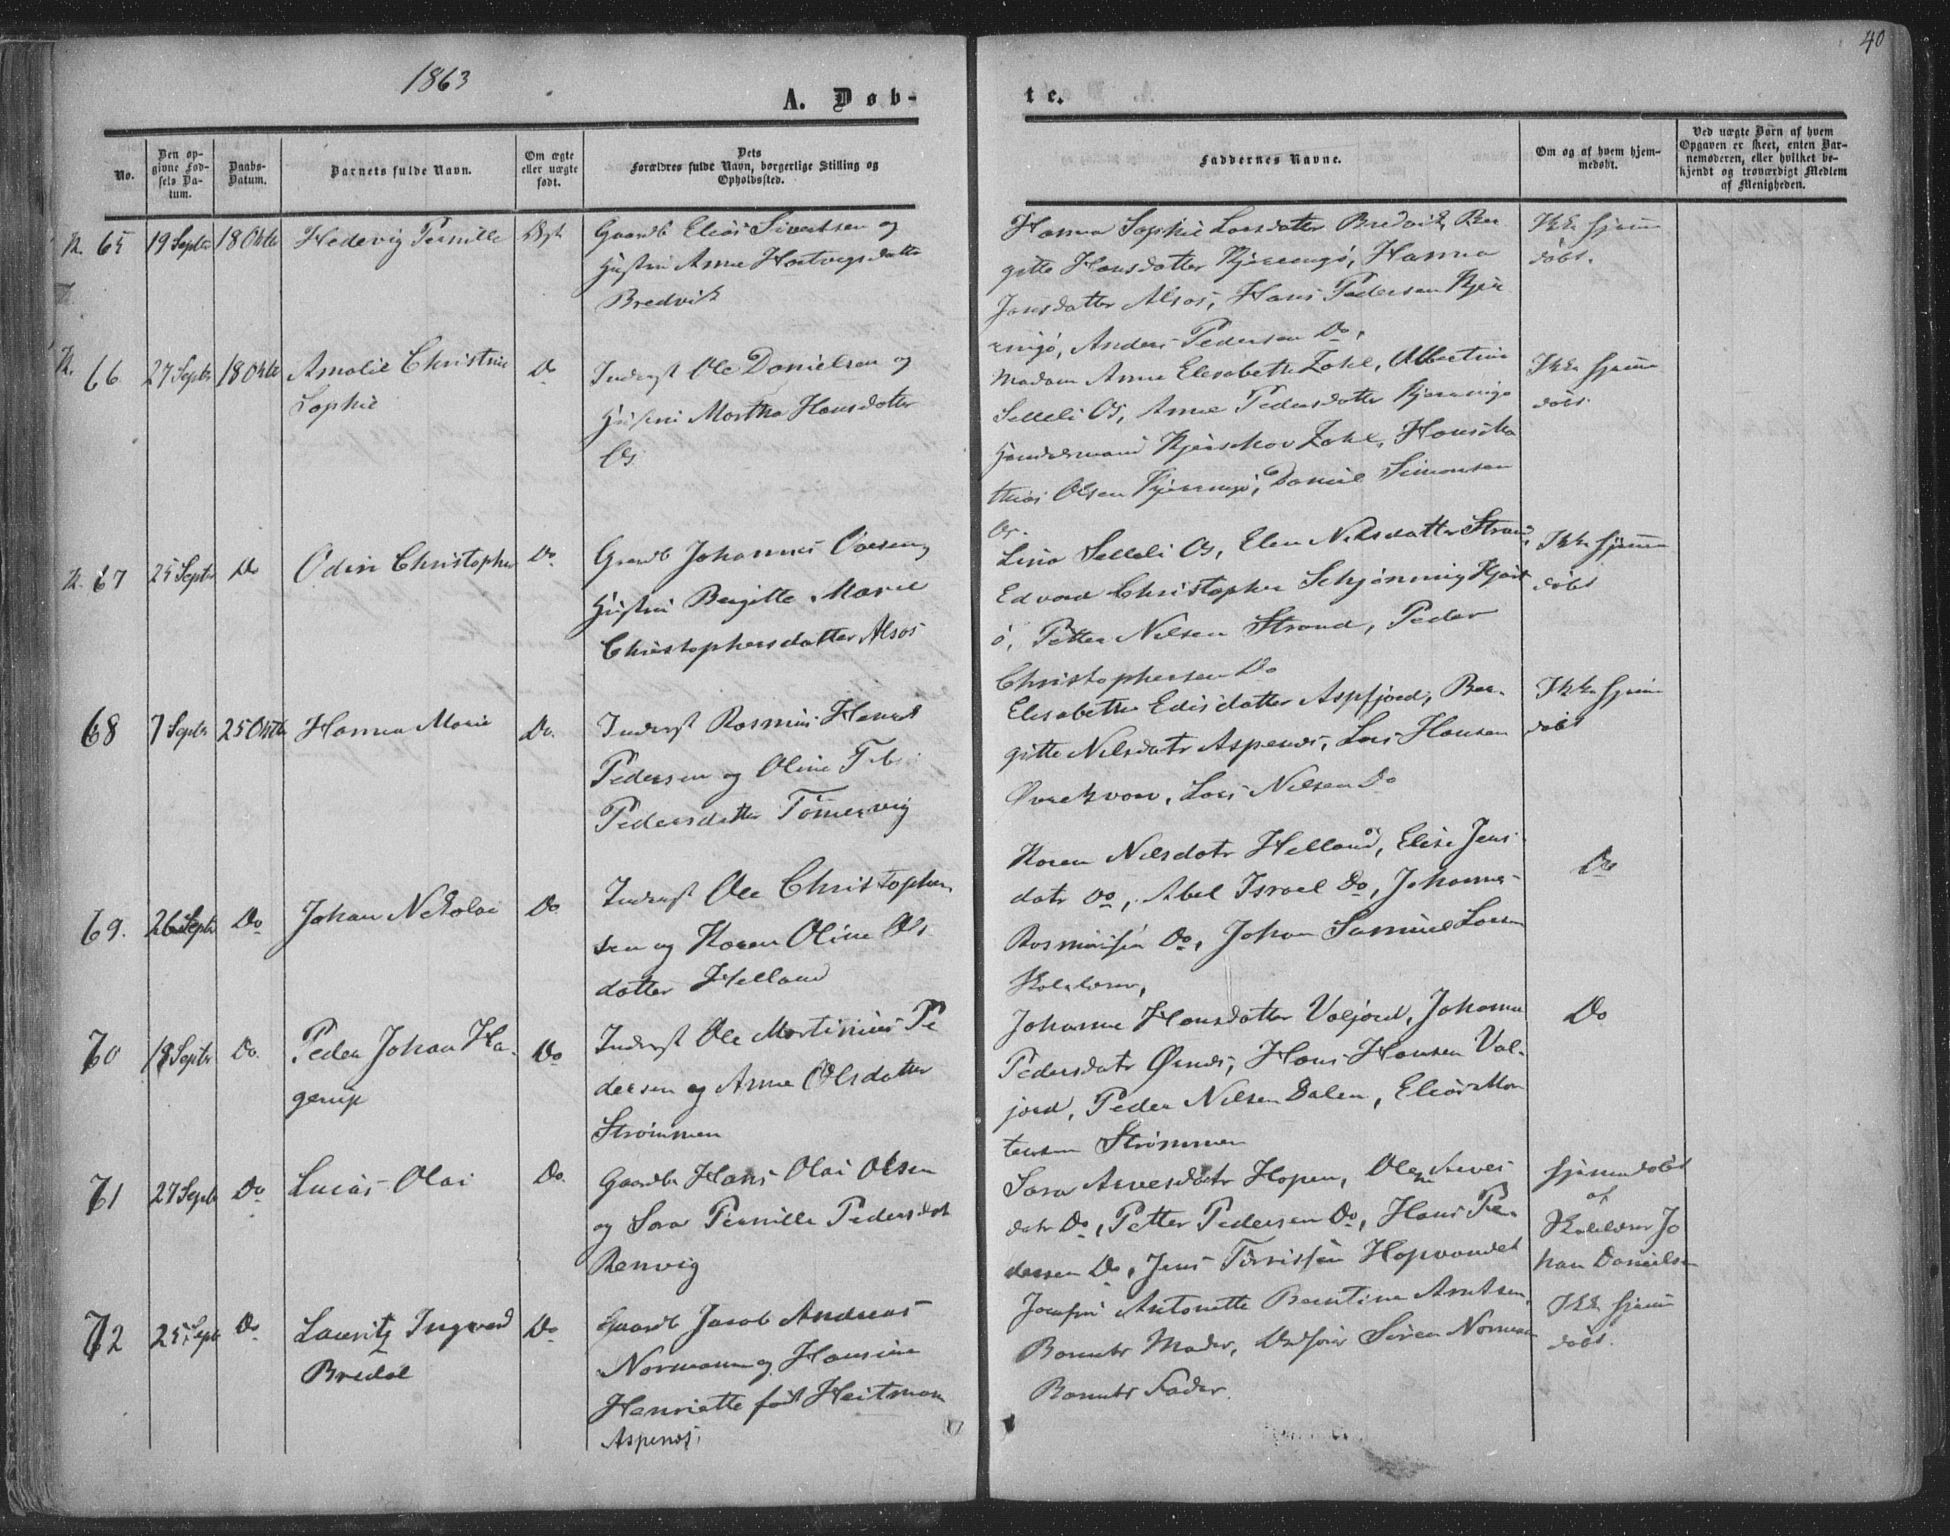 1863
40
A. Døb-
te.
No.
Den op-
givne Fød-
sels Da-
tum.
Daabs-
Datum.
Barnets fulde Navn.
Om ægte
eller uægte
født.
Dets
Forældres fulde Navn, borgerlige Stilling og
Opholdssted.
Faddernes Navne.
Om og af hvem hjem-
medøbt.
Ved uægte Børn af hvem
Opgaven er skeet, enten Bar-
nemoderen, eller hvilket be-
kjendt og troværdigt Medlem
af Menigheden.
K. 65
19 Septbr
18 Oktbr
Hedevig Pernille
Ægt
Gaardb Elias Sivertsen og
Hustru Anne Hartvigsdatter
Bredvik
Hanna Sophie Larsdatter Bredvik, Ber
gitte Hansdatter Kjerringø, Hanna
Jonsdatter Alsos, Hans Pedersen Kjer
ringø, Anders Pedersen Do,
Ikke hjem
døbt.
K. 66
27 Septbr
18 Oktbr
Amalie Christine
Sophie
Do
Inderst Ole Danielsen og
Hustru Martha Hansdatter
Os
Madam Anne Elisabeth Zahl, Albertine
Selleli Os, Anne Pedersdatter Kjerringø
Handelsmand Kjerschov Zahl, Hans
thias Olsen Kjerringø, Daniel Simonsen
Os.
Ikke hjem
døbt.
K. 67
25 Septbr
Do
Odin Christopher
Do
Gaardb Johannes Olsen og
Hustru Bergitte Marie
Christophersdatter Alsos
Lina Selleli Os, Elen Nilsdatter Strand,
Edvard Christopher Schjønning Hjart
ø, Petter Nilsen Strand, Peder
Christophersen Do
Ikke hjem
døbt
68
7 Septbr
25 Oktbr
Hanna Marie
Do.
Inderst Rasmus Hans
Pedersen og Oline
Pedersdatter Tømmervig
Elisabeth Edisdatter Aspfjord, Ber-
gitte Nilsdatr Aspenes, Lars Hansen
Øvrekvar, Lars Nilsen Do
Ikke hjem
døbt
69.
26 Septbr
Do
Johan Nikolai
Do
Inderst Ole Christopher
sen og Karen Oline Ols
datter Helland
Karen Nilsdatr Helland, Elise Jens
datr Do, Abel Israel Do, Johannes
Rasmusen Do, Johan Samuel Larsen
Skolelærer,
Do
70
18 Septbr
Do.
Peder Johan Ha-
gerup
Do
Inderst Ole Martinius Pe
dersen og Anne Olsdatter
Strømmen
Johanna Hansdatter Valjord, Johanna
Pedersdatr Ørnes, Hans Hansen Val-
jord, Peder Nilsen Dalen, Elias Mor
tensen Strømmen
Do
71
27 Septbr
Do
Lucas Olai
Do.
Gaardbr Hans Olai Olsen
og Sara Pernille Pedersdat
Renvig
Sara Arvesdatr Hopen, Oline Arves
datr Do, Petter Pedersen Do, Hans Pe
dersen Do, Jens Torrissen Hopvandet
hjemmedøbt
af
Skolelærer Jo
han Danielsen
72
25 Septbr
Do
Lauritz Ingvard
Bredal
Do
Gaardb Jacob Andreas
Normann og Hansine
Henriette født Heitmann
Aspenes.
Josefine Antonette Berntine Arntsen,
Barnets Moder, Søren Normann
Barnets Fader.
Ikke hjem
døbt.